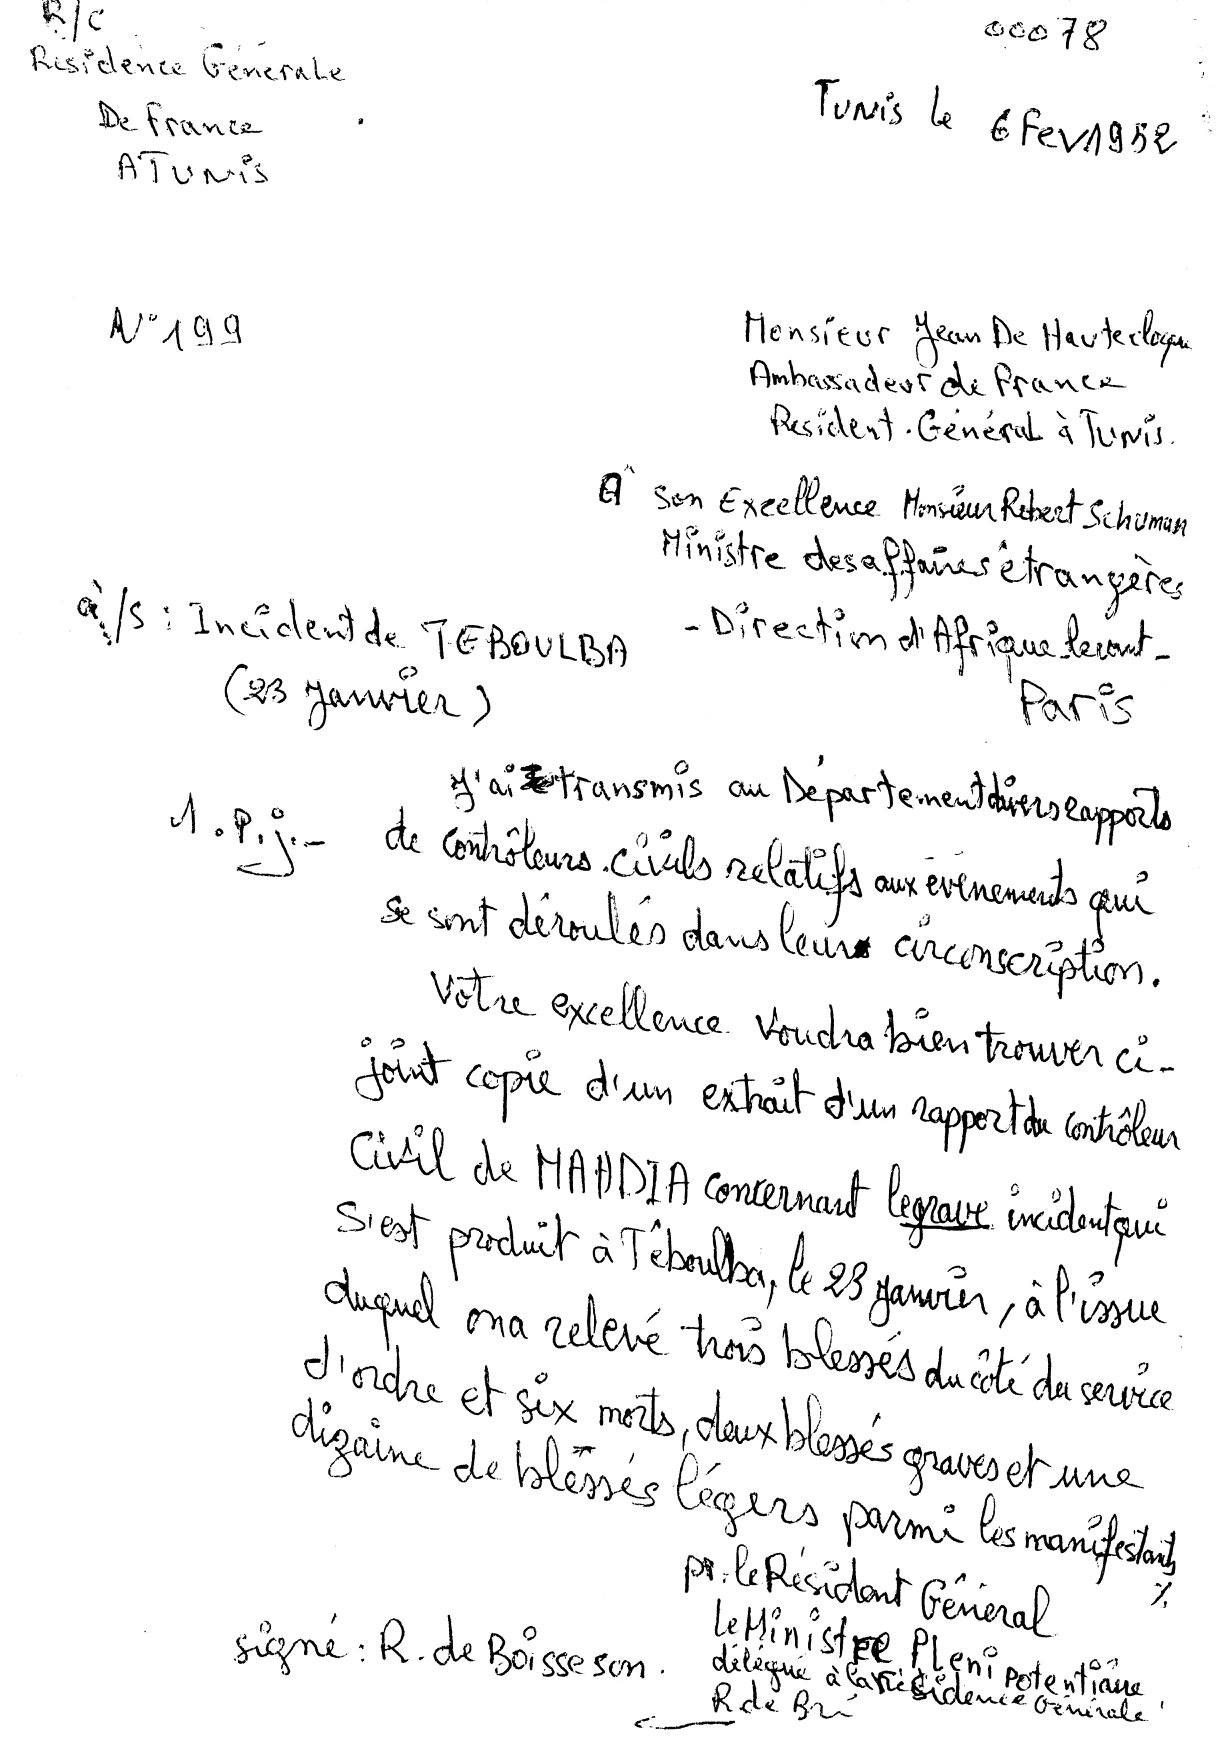 R/C
00078
Résidence Générale
De France
A TUNIS
TUNIS le 6 Fev 1952
N° 199
Monsieur Jean De Hauteclocque
Ambassadeur de France
Resident. Général à TUNIS.
A son Excellence Monsieur Robert Schuman
Ministre des affaires étrangères
- Direction d'Afrique levant -
Paris
à/s : Incident de TEBOULBA
(23 janvier)
1. P.j. -
J'ai transmis au Département divers rapports
de contrôleurs. civils relatifs aux événements qui
se sont déroulés dans leur circonscription.
Votre excellence voudra bien trouver ci-
joint copie d'un extrait d'un rapport du contrôleur
Civil de MAHDIA concernant le grave incident qui
s'est produit à Téboulba, le 23 janvier, à l'issue
duquel on a relevé trois blessés du côté du service
d'ordre et six morts, deux blessés graves et une
dizaine de blessés légers parmi les manifestants
pr. le Résident Général
le Ministre Pleni potentiaire
délégué à la Résidence Générale
signé : R. de Boisseson.
R de